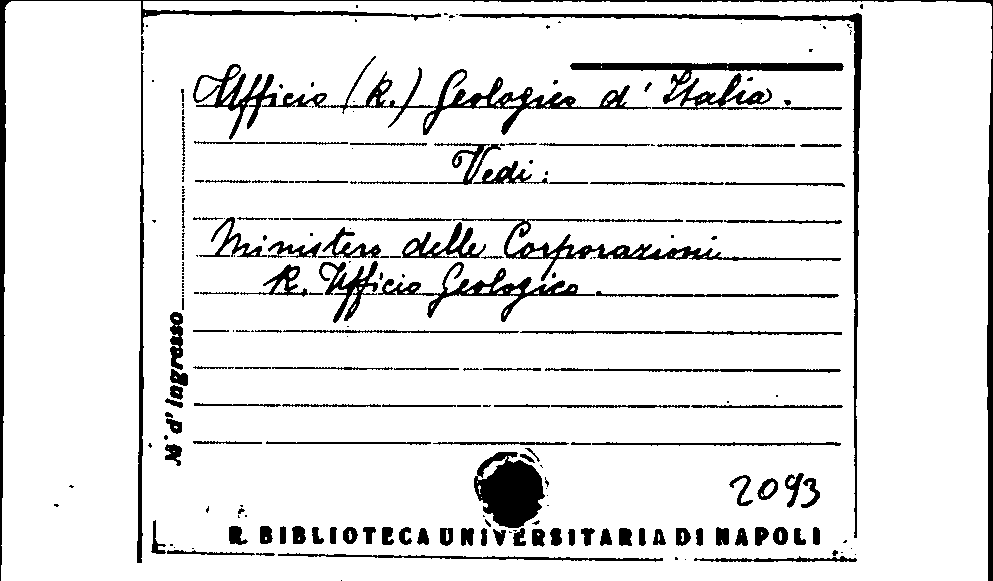 Ufficio (R.) Geologico d'Italia.
Vedi:
Ministero delle Corporazioni.
R. Ufficio Geologico.
N° d'ingresso
2093
R. BIBLIOTECA UNIVERSITARIA DI NAPOLI